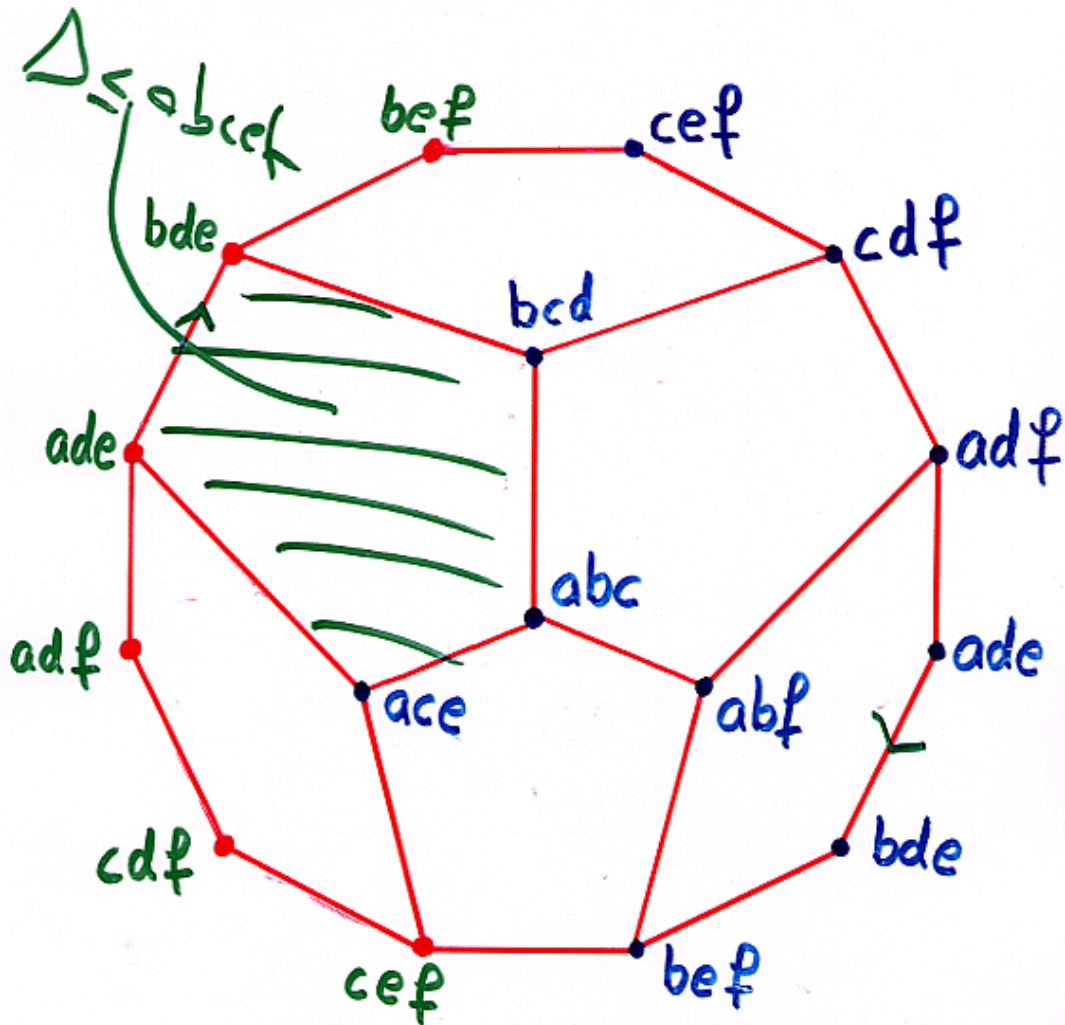 Δ≤abcef
bef
cef
bde
cdf
bcd
ade
adf
abc
adf
ade
ace
abf
cdf
bde
cef
bef